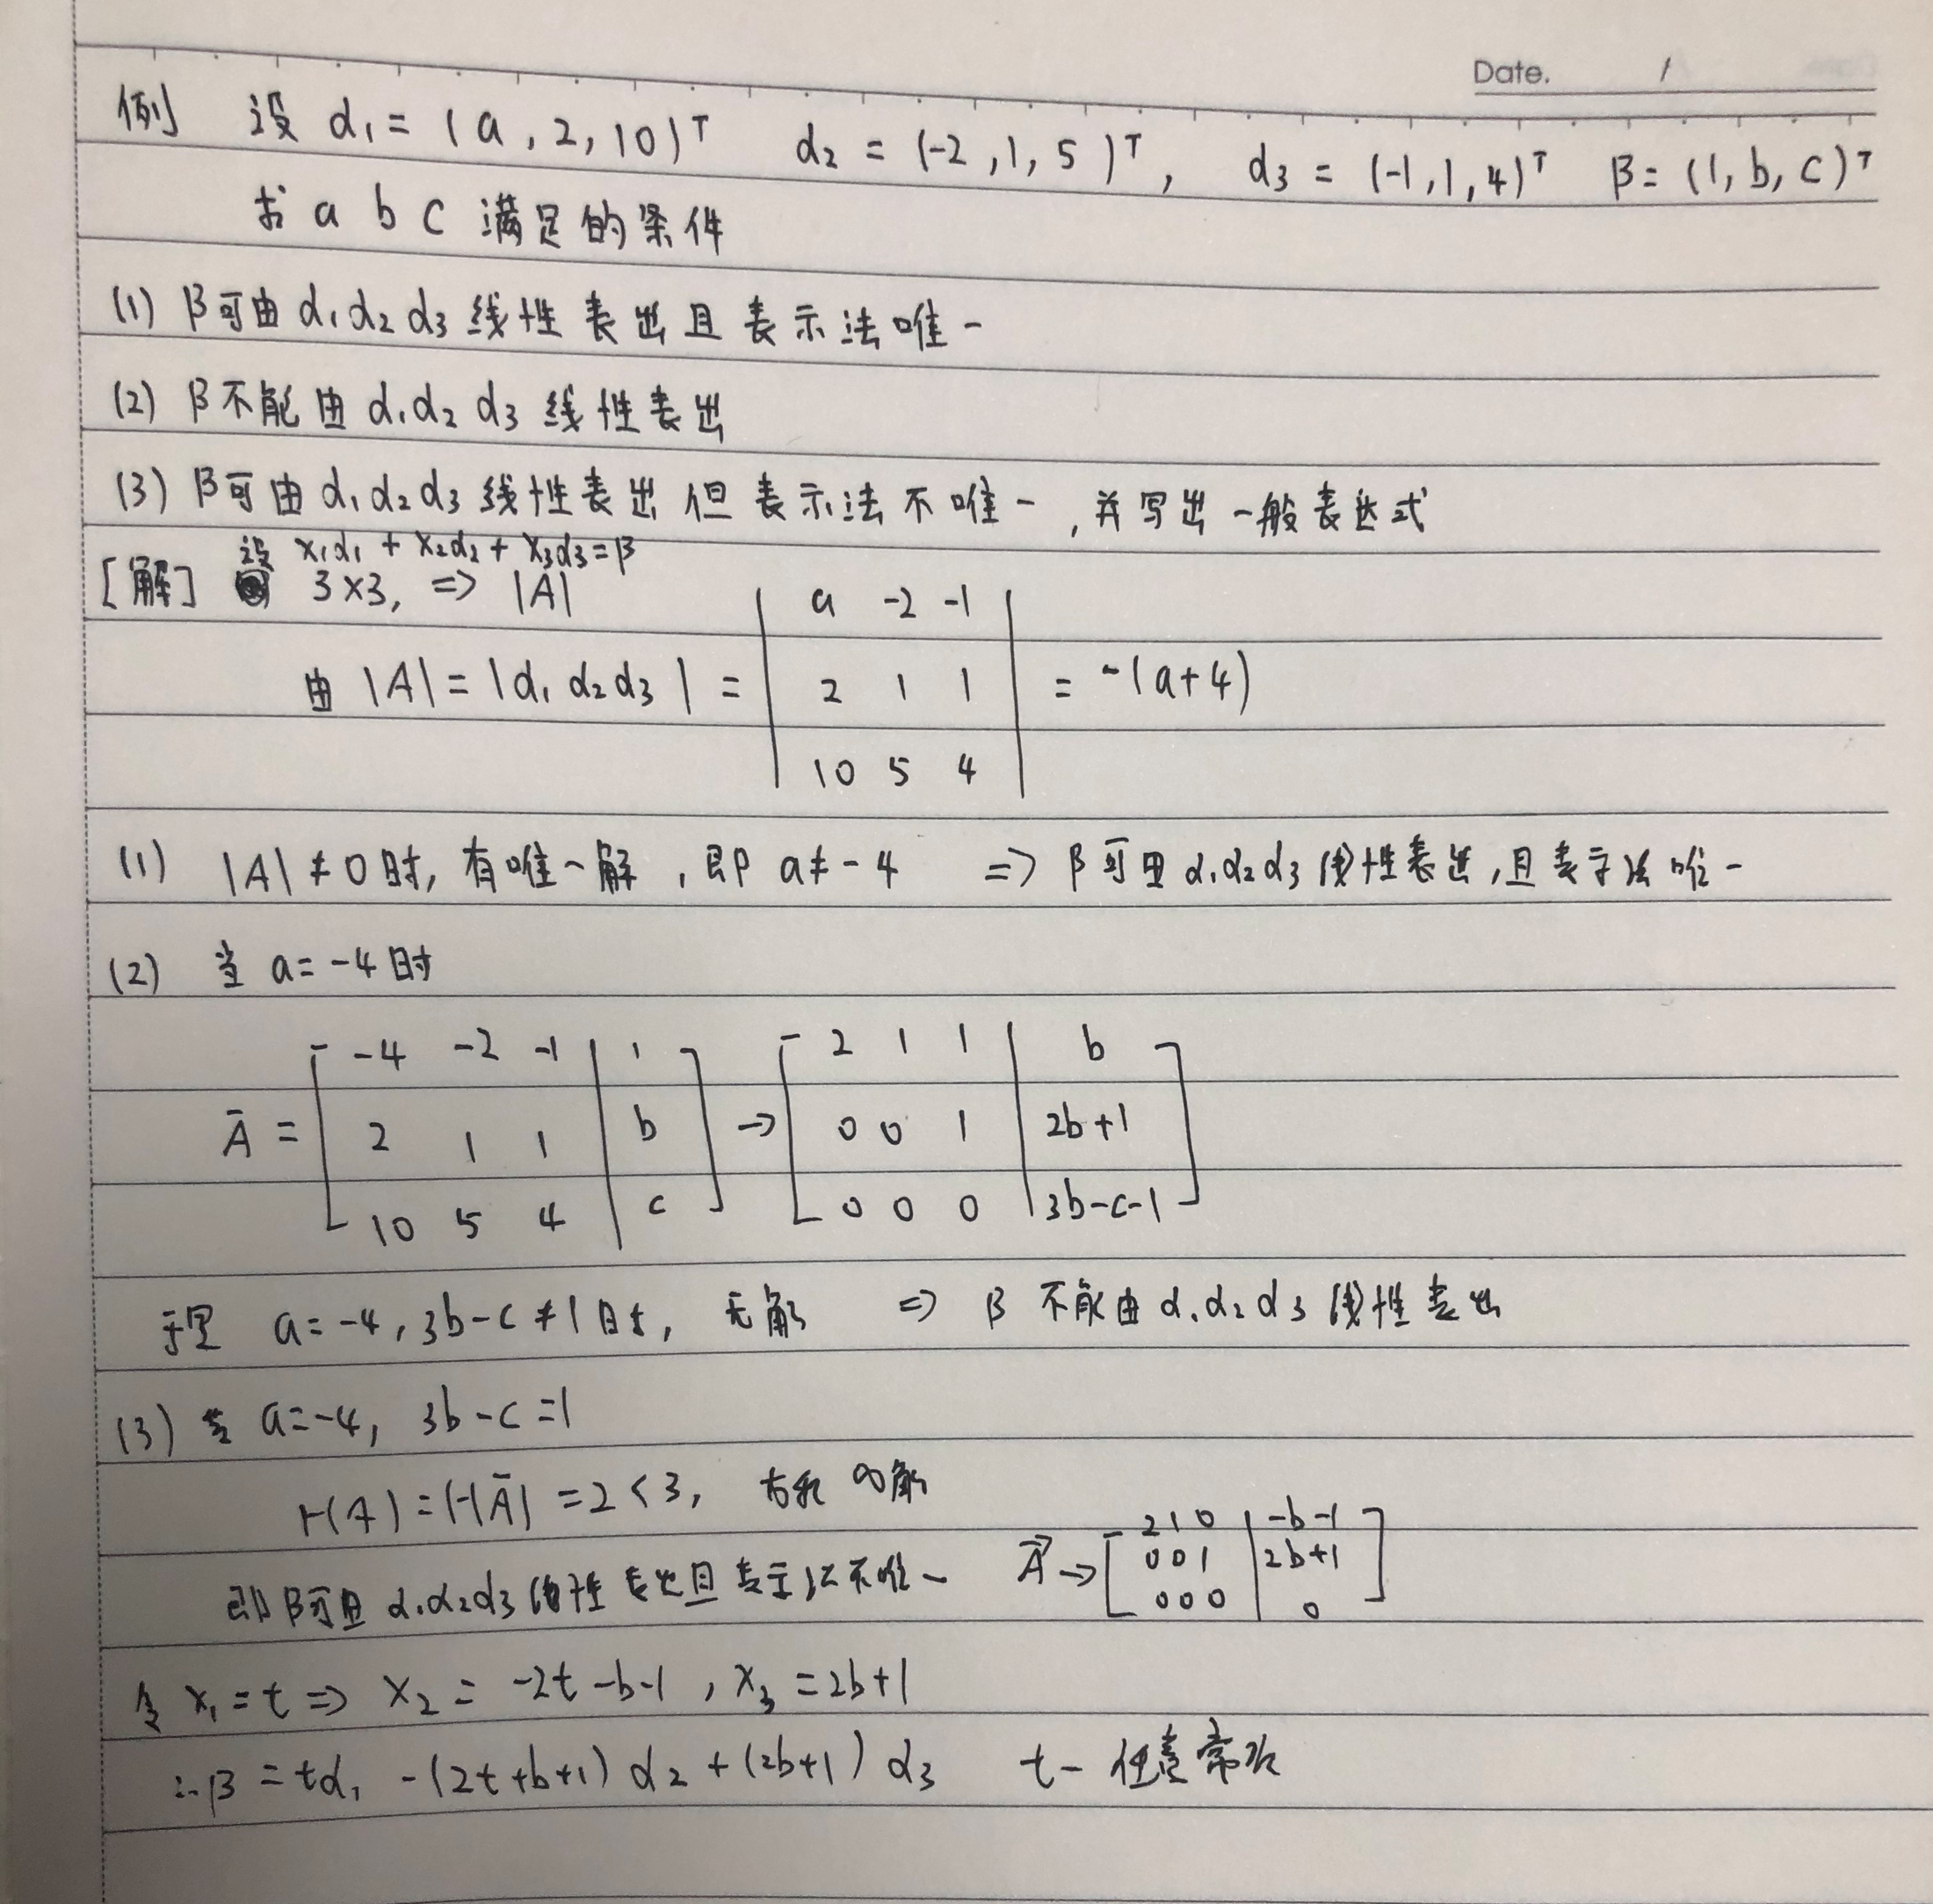 Date. /
例 设 α₁ = (a, 2, 10)ᵀ α₂ = (-2, 1, 5)ᵀ, α₃ = (-1, 1, 4)ᵀ β = (1, b, c)ᵀ
求 a b c 满足的条件
(1) β可由 α₁ α₂ α₃ 线性表出且表示法唯一
(2) β不能由 α₁ α₂ α₃ 线性表出
(3) β可由 α₁ α₂ α₃ 线性表出但表示法不唯一, 并写出一般表达式
设 x₁α₁ + x₂α₂ + x₃α₃ = β
[解] 3×3, => |A|
由 |A| = |α₁ α₂ α₃| = | a -2 -1 | = -(a+4)
2 1 1
10 5 4
(1) |A| ≠ 0 时, 有唯一解, 即 a ≠ -4 => β可由 α₁ α₂ α₃ 线性表出, 且表示法唯一
(2) 当 a = -4 时
-4 -2 -1 | 1 2 1 1 | b
Ā = 2 1 1 | b -> 0 0 1 | 2b+1
10 5 4 | c 0 0 0 | 3b-c-1
于是 a = -4, 3b-c ≠ 1 时, 无解 => β 不能由 α₁ α₂ α₃ 线性表出
(3) 当 a = -4, 3b-c = 1
r(A) = r(Ā) = 2 < 3, ∞解
即β可由 α₁ α₂ α₃ 线性表出且表示法不唯一 Ā -> 2 1 0 | -b-1
0 0 1 | 2b+1
0 0 0 | 0
令 x₁ = t => x₂ = -2t-b-1, x₃ = 2b+1
∴ β = tα₁ -(2t+b+1) α₂ + (2b+1) α₃ t - 任意常数